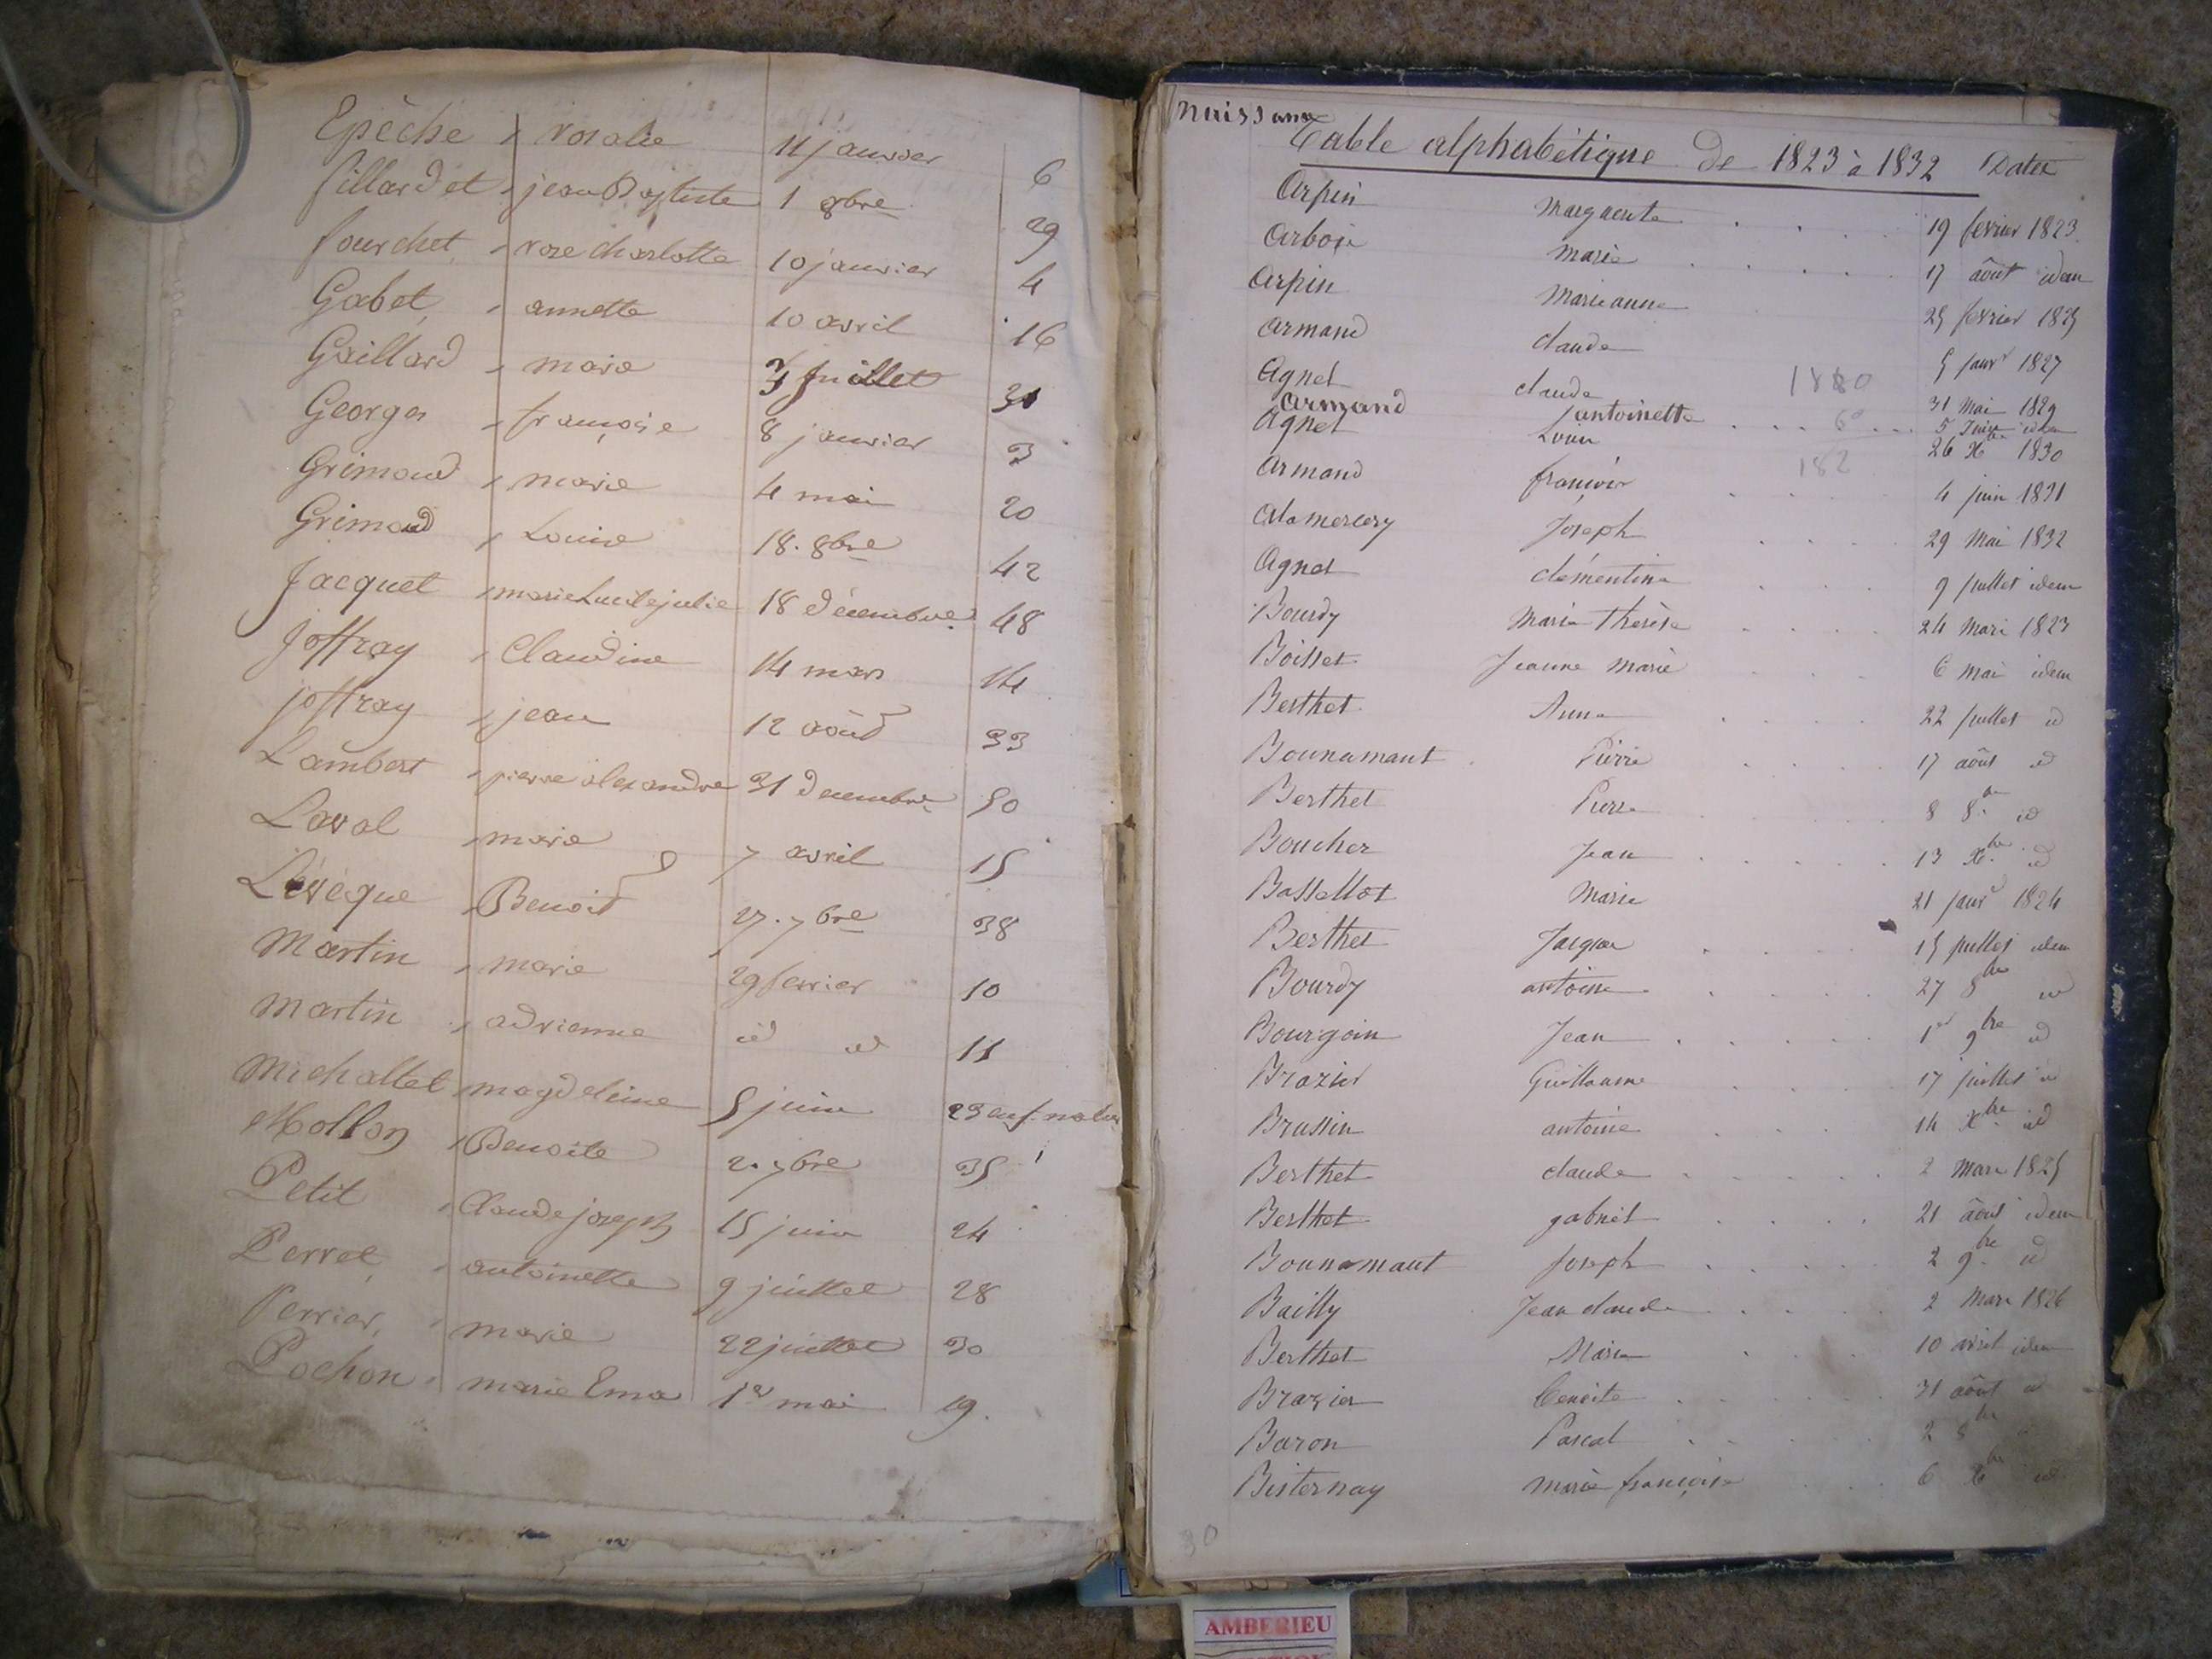 Epèche , rosalie 11 janvier 6
fillardet , jean Baptiste 1 8bre 29
fourchet , rose charlotte 10 janvier 4
Gabet , annette 10 avril 16
Gaillard , marie juillet 31
Georges , françoise 8 janvier 3
Grimaud , marie 4 mai 20
Grimaud , Louise 18. 8bre 42
Jacquet , marie Lucile julie 18 décembre 48
Joffray , Claudine 14 mars 14
joffray , jean 12 août 33
Lambert , pierre alexandre 31 decembre 50
Laval , marie 7 avril 15
Lévèque , Benoit 27. 7bre 38
Martin , marie 29 fevrier 10
Martin , adrienne id id 11
Michallet , magdeleine 5 juin 23 enf. natu
Mollon , Benoite 2. 7bre 35
Petit , Claude joseph 15 juin 24
Perret , antoinette 9 juillet 28
Perrier , marie 22 juillet 30
Pochon , marie Ema 1er mai 19.
Naissanc
Table alphabétique De 1823 à 1832 Dates
Arpin Marguerite 19 fevrier 1823
Arbois Marie 17 août idem
Arpin Marie anne 25 fevrier 1825
Armand claude 5 janvr 1827
Agnet claude 1880 31 Mai 1829
Armand antoinette 5 Juin idem
Agnet Louis 26 Xbre 1830
Armand françois 182 4 juin 1831
Alamercery Joseph 29 Mai 1832
Agnet clémentine 9 juillet idem
Bourdy Marie Thérèse 24 Mars 1823
Boisset Jeanne Marie 6 mai idem
Berthet Anne 22 juillet id
Bounamant Pierre 17 août id
Berthet Pierre 8 8bre id
Boucher Jean 13 Xbre id
Bassettot Marie 21 janvr 1824
Berthet Jacques 15 juillet idem
Bourdy antoine 27 8bre id
Bourgoin Jean 1er 9bre id
Brazier Guillaume 17 juillet id
Brussin antoine 14 Xbre id
Berthet claude 2 Mars 1825
Berthet gabriel 21 août idem
Bounamant Joseph 2 9bre id
Bailly Jean claude 2 Mars 1826
Berthet Marie 10 avril idem
Brazier benoite 31 août id
Baron Pascal 2 8bre
Bisternay Marie françoise 6 Xbre id
30
AMBERIEU